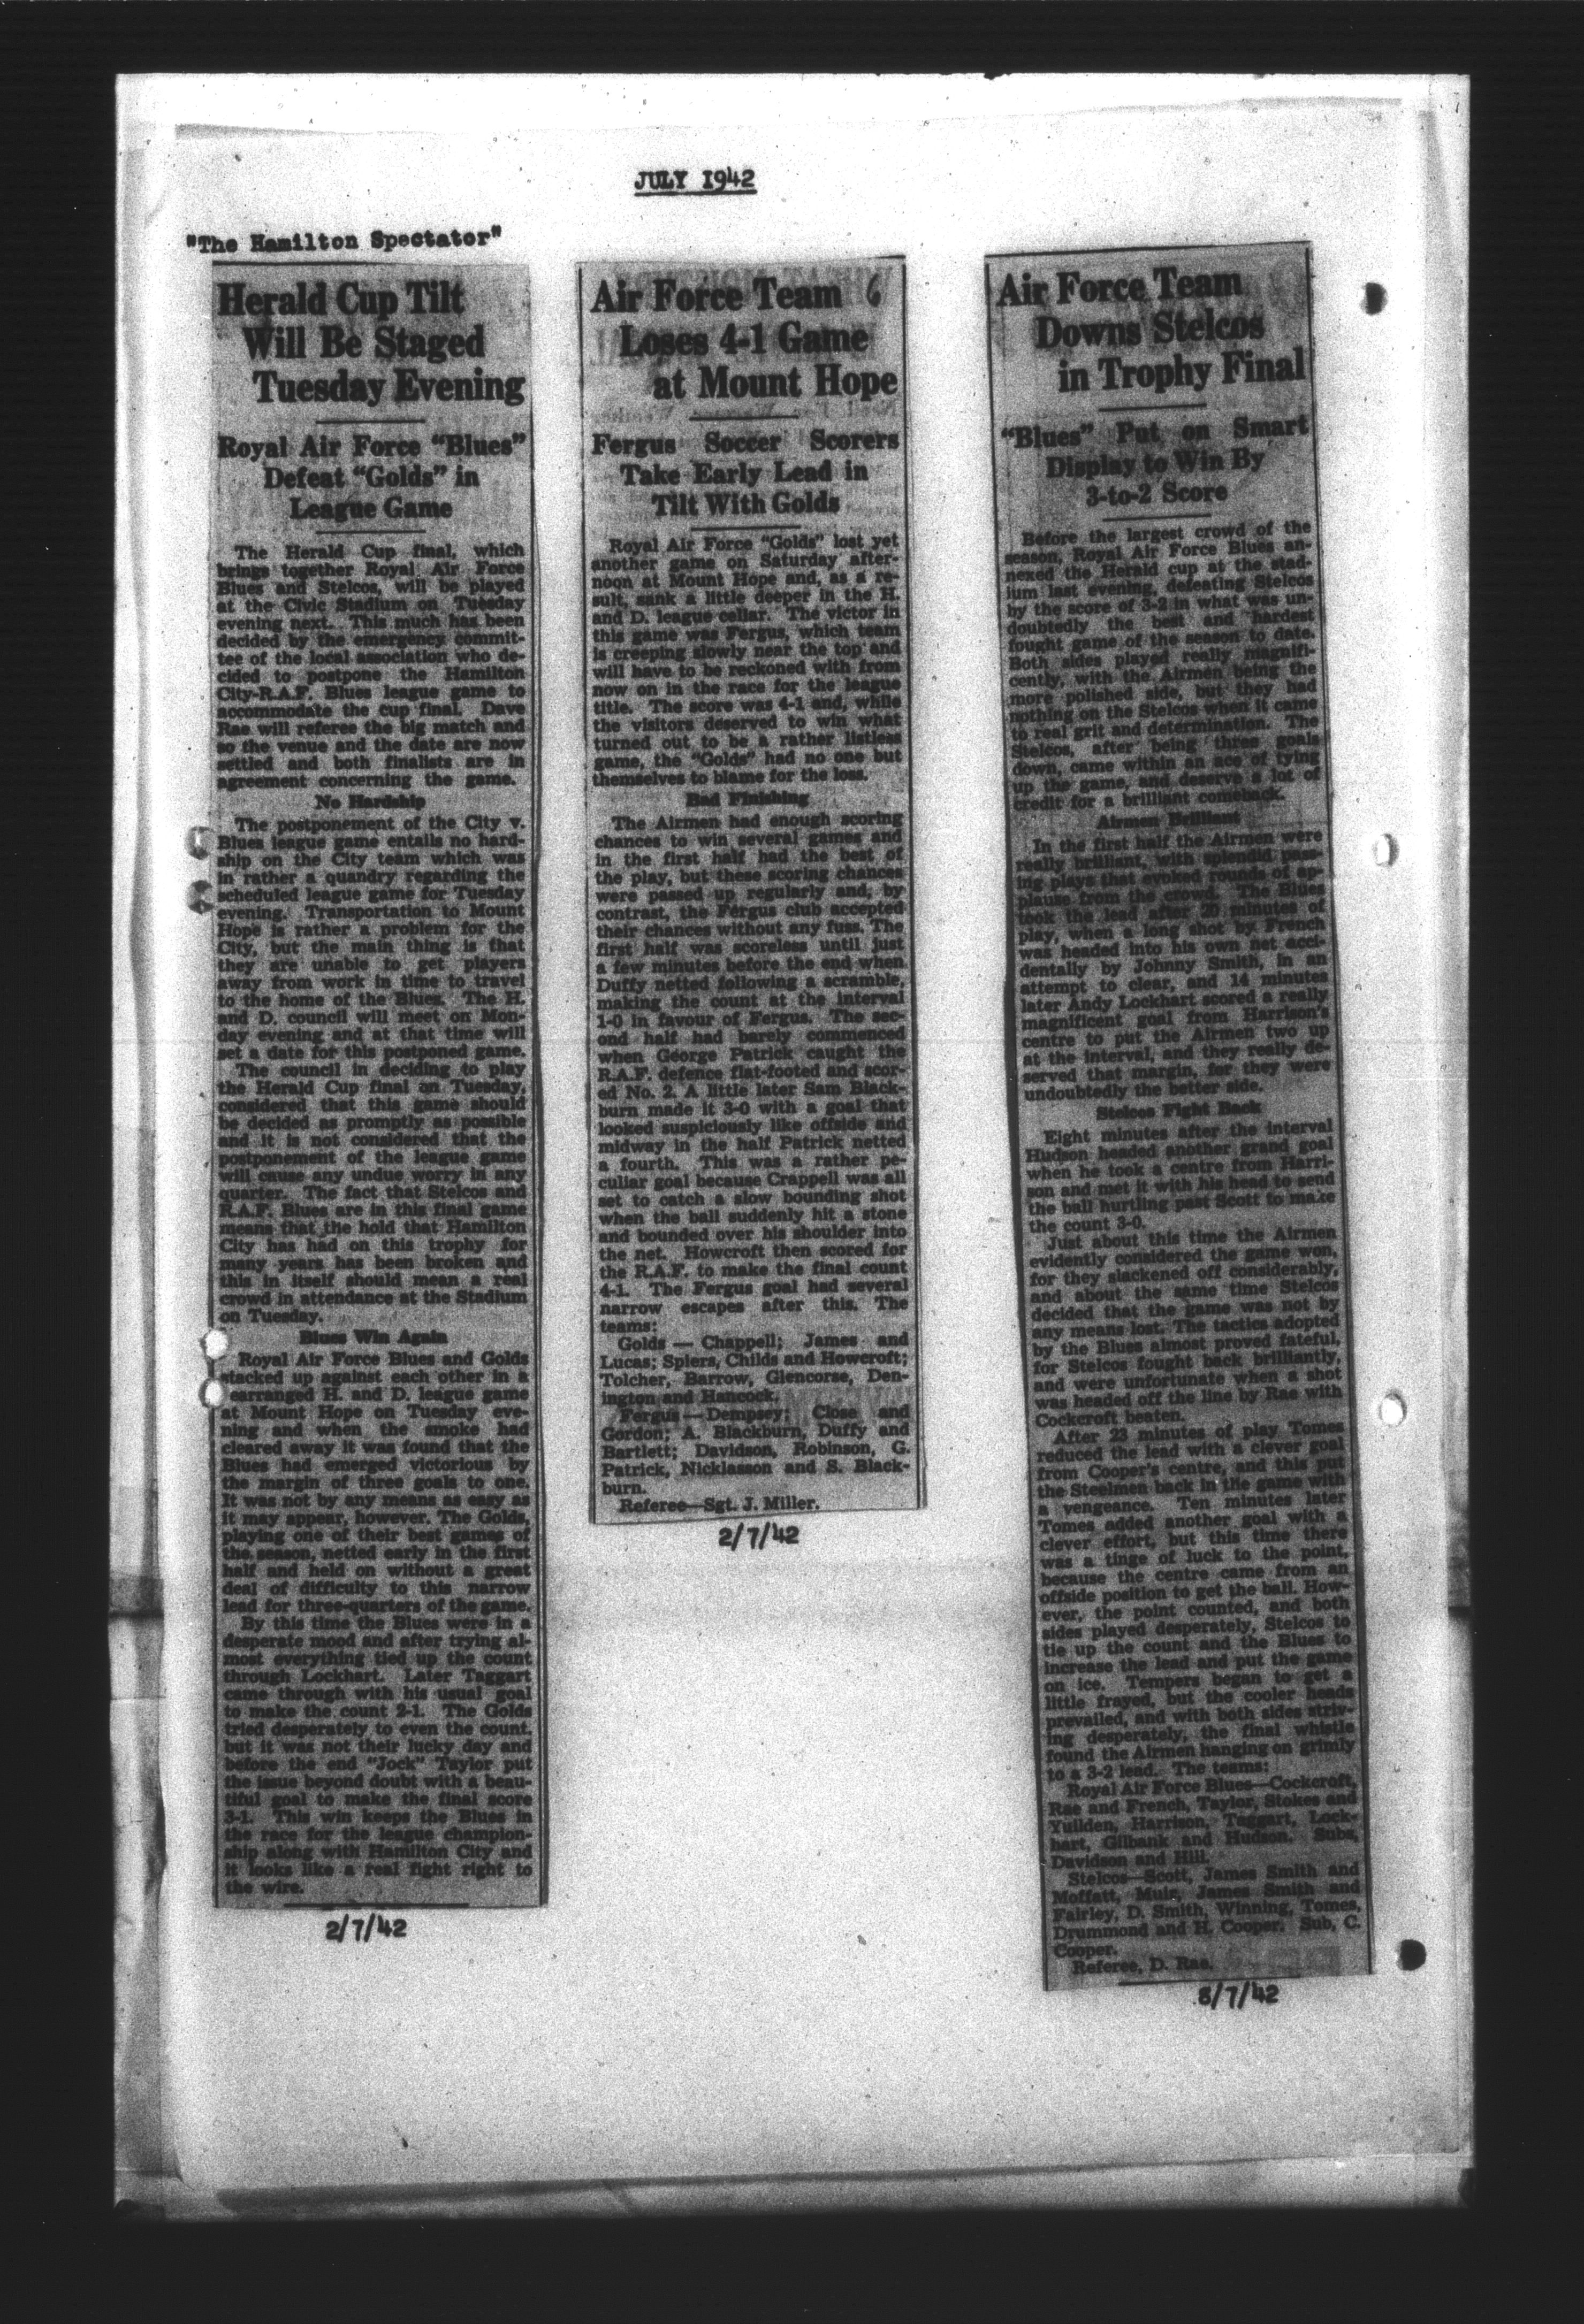 JULY 1942
"The Hamilton Spectator"
Herald Cup Tilt
Will Be Staged
Tuesday Evening
Royal Air Force "Blues"
Defeat "Golds" in
League Game
The Herald Cup final, which
brings together Royal Air Force
Blues and Stelcos, will be played
at the Civic Stadium on Tuesday
evening next. This much has been
decided by the emergency commit-
tee of the local association who de-
cided to postpone the Hamilton
City-R.A.F. Blues league game to
accommodate the cup final. Dave
Rae will referee the big match and
so the venue and the date are now
settled and both finalists are in
agreement concerning the game.
No Hardship
The postponement of the City v.
Blues league game entails no hard-
ship on the City team which was
in rather a quandry regarding the
scheduled league game for Tuesday
evening. Transportation to Mount
Hope is rather a problem for the
City, but the main thing is that
they are unable to get players
away from work in time to travel
to the home of the Blues. The H.
and D. council will meet on Mon-
day evening and at that time will
set a date for this postponed game.
The council in deciding to play
the Herald Cup final on Tuesday,
considered that this game should
be decided as promptly as possible
and it is not considered that the
postponement of the league game
will cause any undue worry in any
quarter. The fact that Stelcos and
R.A.F. Blues are in this final game
means that the hold that Hamilton
City has had on this trophy for
many years has been broken and
this in itself should mean a real
crowd in attendance at the Stadium
on Tuesday.
Blues Win Again
Royal Air Force Blues and Golds
stacked up against each other in a
earranged H. and D. league game
at Mount Hope on Tuesday eve-
ning and when the smoke had
cleared away it was found that the
Blues had emerged victorious by
the margin of three goals to one.
It was not by any means as easy as
it may appear, however. The Golds,
playing one of their best games of
the season, netted early in the first
half and held on without a great
deal of difficulty to this narrow
lead for three-quarters of the game.
By this time the Blues were in a
desperate mood and after trying al-
most everything tied up the count
through Lockhart. Later Taggart
came through with his usual goal
to make the count 2-1. The Golds
tried desperately to even the count,
but it was not their lucky day and
before the end "Jock" Taylor put
the issue beyond doubt with a beau-
tiful goal to make the final score
3-1. This win keeps the Blues in
the race for the league champion-
ship along with Hamilton City and
it looks like a real fight right to
the wire.
2/7/42
Air Force Team 6
Loses 4-1 Game
at Mount Hope
Fergus Soccer Scorers
Take Early Lead in
Tilt With Golds
Royal Air Force "Golds" lost yet
another game on Saturday after-
noon at Mount Hope and, as a re-
sult, sank a little deeper in the H.
and D. league cellar. The victor in
this game was Fergus, which team
is creeping slowly near the top and
will have to be reckoned with from
now on in the race for the league
title. The score was 4-1 and, while
the visitors deserved to win what
turned out to be a rather listless
game, the "Golds" had no one but
themselves to blame for the loss.
Bad Finishing
The Airmen had enough scoring
chances to win several games and
in the first half had the best of
the play, but these scoring chances
were passed up regularly and, by
contrast, the Fergus club accepted
their chances without any fuss. The
first half was scoreless until just
a few minutes before the end when
Duffy netted following a scramble,
making the count at the interval
1-0 in favour of Fergus. The sec-
ond half had barely commenced
when George Patrick caught the
R.A.F. defence flat-footed and scor-
ed No. 2. A little later Sam Black-
burn made it 3-0 with a goal that
looked suspiciously like offside and
midway in the half Patrick netted
a fourth. This was a rather pe-
culiar goal because Crappell was all
set to catch a slow bounding shot
when the ball suddenly hit a stone
and bounded over his shoulder into
the net. Howcroft then scored for
the R.A.F. to make the final count
4-1. The Fergus goal had several
narrow escapes after this. The
teams:
Golds — Chappell; James and
Lucas; Spiers, Childs and Howcroft;
Tolcher, Barrow, Glencorse, Den-
ington and Hancock.
Fergus — Dempsey; Close and
Gordon; A. Blackburn, Duffy and
Bartlett; Davidson, Robinson, G.
Patrick, Nicklasson and S. Black-
burn.
Referee—Sgt. J. Miller.
2/7/42
Air Force Team
Downs Stelcos
in Trophy Final
"Blues" Put on Smart
Display to Win By
3-to-2 Score
Before the largest crowd of the
season, Royal Air Force Blues an-
nexed the Herald cup at the stad-
ium last evening, defeating Stelcos
by the score of 3-2 in what was un-
doubtedly the best and hardest
fought game of the season to date.
Both sides played really magnifi-
cently, with the Airmen being the
more polished side, but they had
nothing on the Stelcos when it came
to real grit and determination. The
Stelcos, after being three goals
down, came within an ace of tying
up the game, and deserve a lot of
credit for a brilliant comeback.
Airmen Brilliant
In the first half the Airmen were
really brilliant, with splendid pass-
ing plays that evoked rounds of ap-
plause from the crowd. The Blues
took the lead after 20 minutes of
play, when a long shot by French
was headed into his own net acci-
dentally by Johnny Smith, in an
attempt to clear, and 14 minutes
later Andy Lockhart scored a really
magnificent goal from Harrison's
centre to put the Airmen two up
at the interval, and they really de-
served that margin, for they were
undoubtedly the better side.
Stelcos Fight Back
Eight minutes after the interval
Hudson headed another grand goal
when he took a centre from Harri-
son and met it with his head to send
the ball hurtling past Scott to make
the count 3-0.
Just about this time the Airmen
evidently considered the game won,
for they slackened off considerably,
and about the same time Stelcos
decided that the game was not by
any means lost. The tactics adopted
by the Blues almost proved fateful,
for Stelcos fought back brilliantly,
and were unfortunate when a shot
was headed off the line by Rae with
Cockcroft beaten.
After 23 minutes of play Tomes
reduced the lead with a clever goal
from Cooper's centre, and this put
the Steelmen back in the game with
a vengeance. Ten minutes later
Tomes added another goal with a
clever effort, but this time there
was a tinge of luck to the point,
because the centre came from an
offside position to get the ball. How-
ever, the point counted, and both
sides played desperately, Stelcos to
tie up the count and the Blues to
increase the lead and put the game
on ice. Tempers began to get a
little frayed, but the cooler heads
prevailed, and with both sides striv-
ing desperately, the final whistle
found the Airmen hanging on grimly
to a 3-2 lead. The teams:
Royal Air Force Blues—Cockcroft,
Rae and French, Taylor, Stokes and
Yuilden, Harrison, Taggart, Lock-
hart, Gilbank and Hudson. Subs,
Davidson and Hill.
Stelcos—Scott, James Smith and
Moffatt, Muir, James Smith and
Fairley, D. Smith, Winning, Tomes,
Drummond and H. Cooper. Sub, C.
Cooper.
Referee, D. Rae.
8/7/42